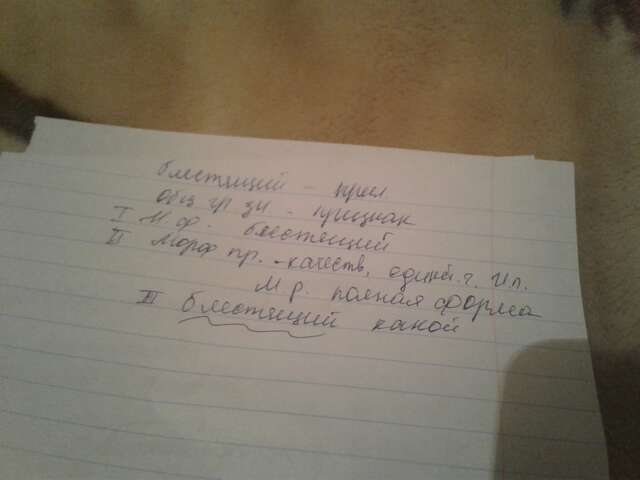 блестящий - прил
Общ гр зн. - признак
I Н. ф. блестящий
II Морф пр. - качеств, единст. ч, И п.
М р. полная форма
III блестящий какой